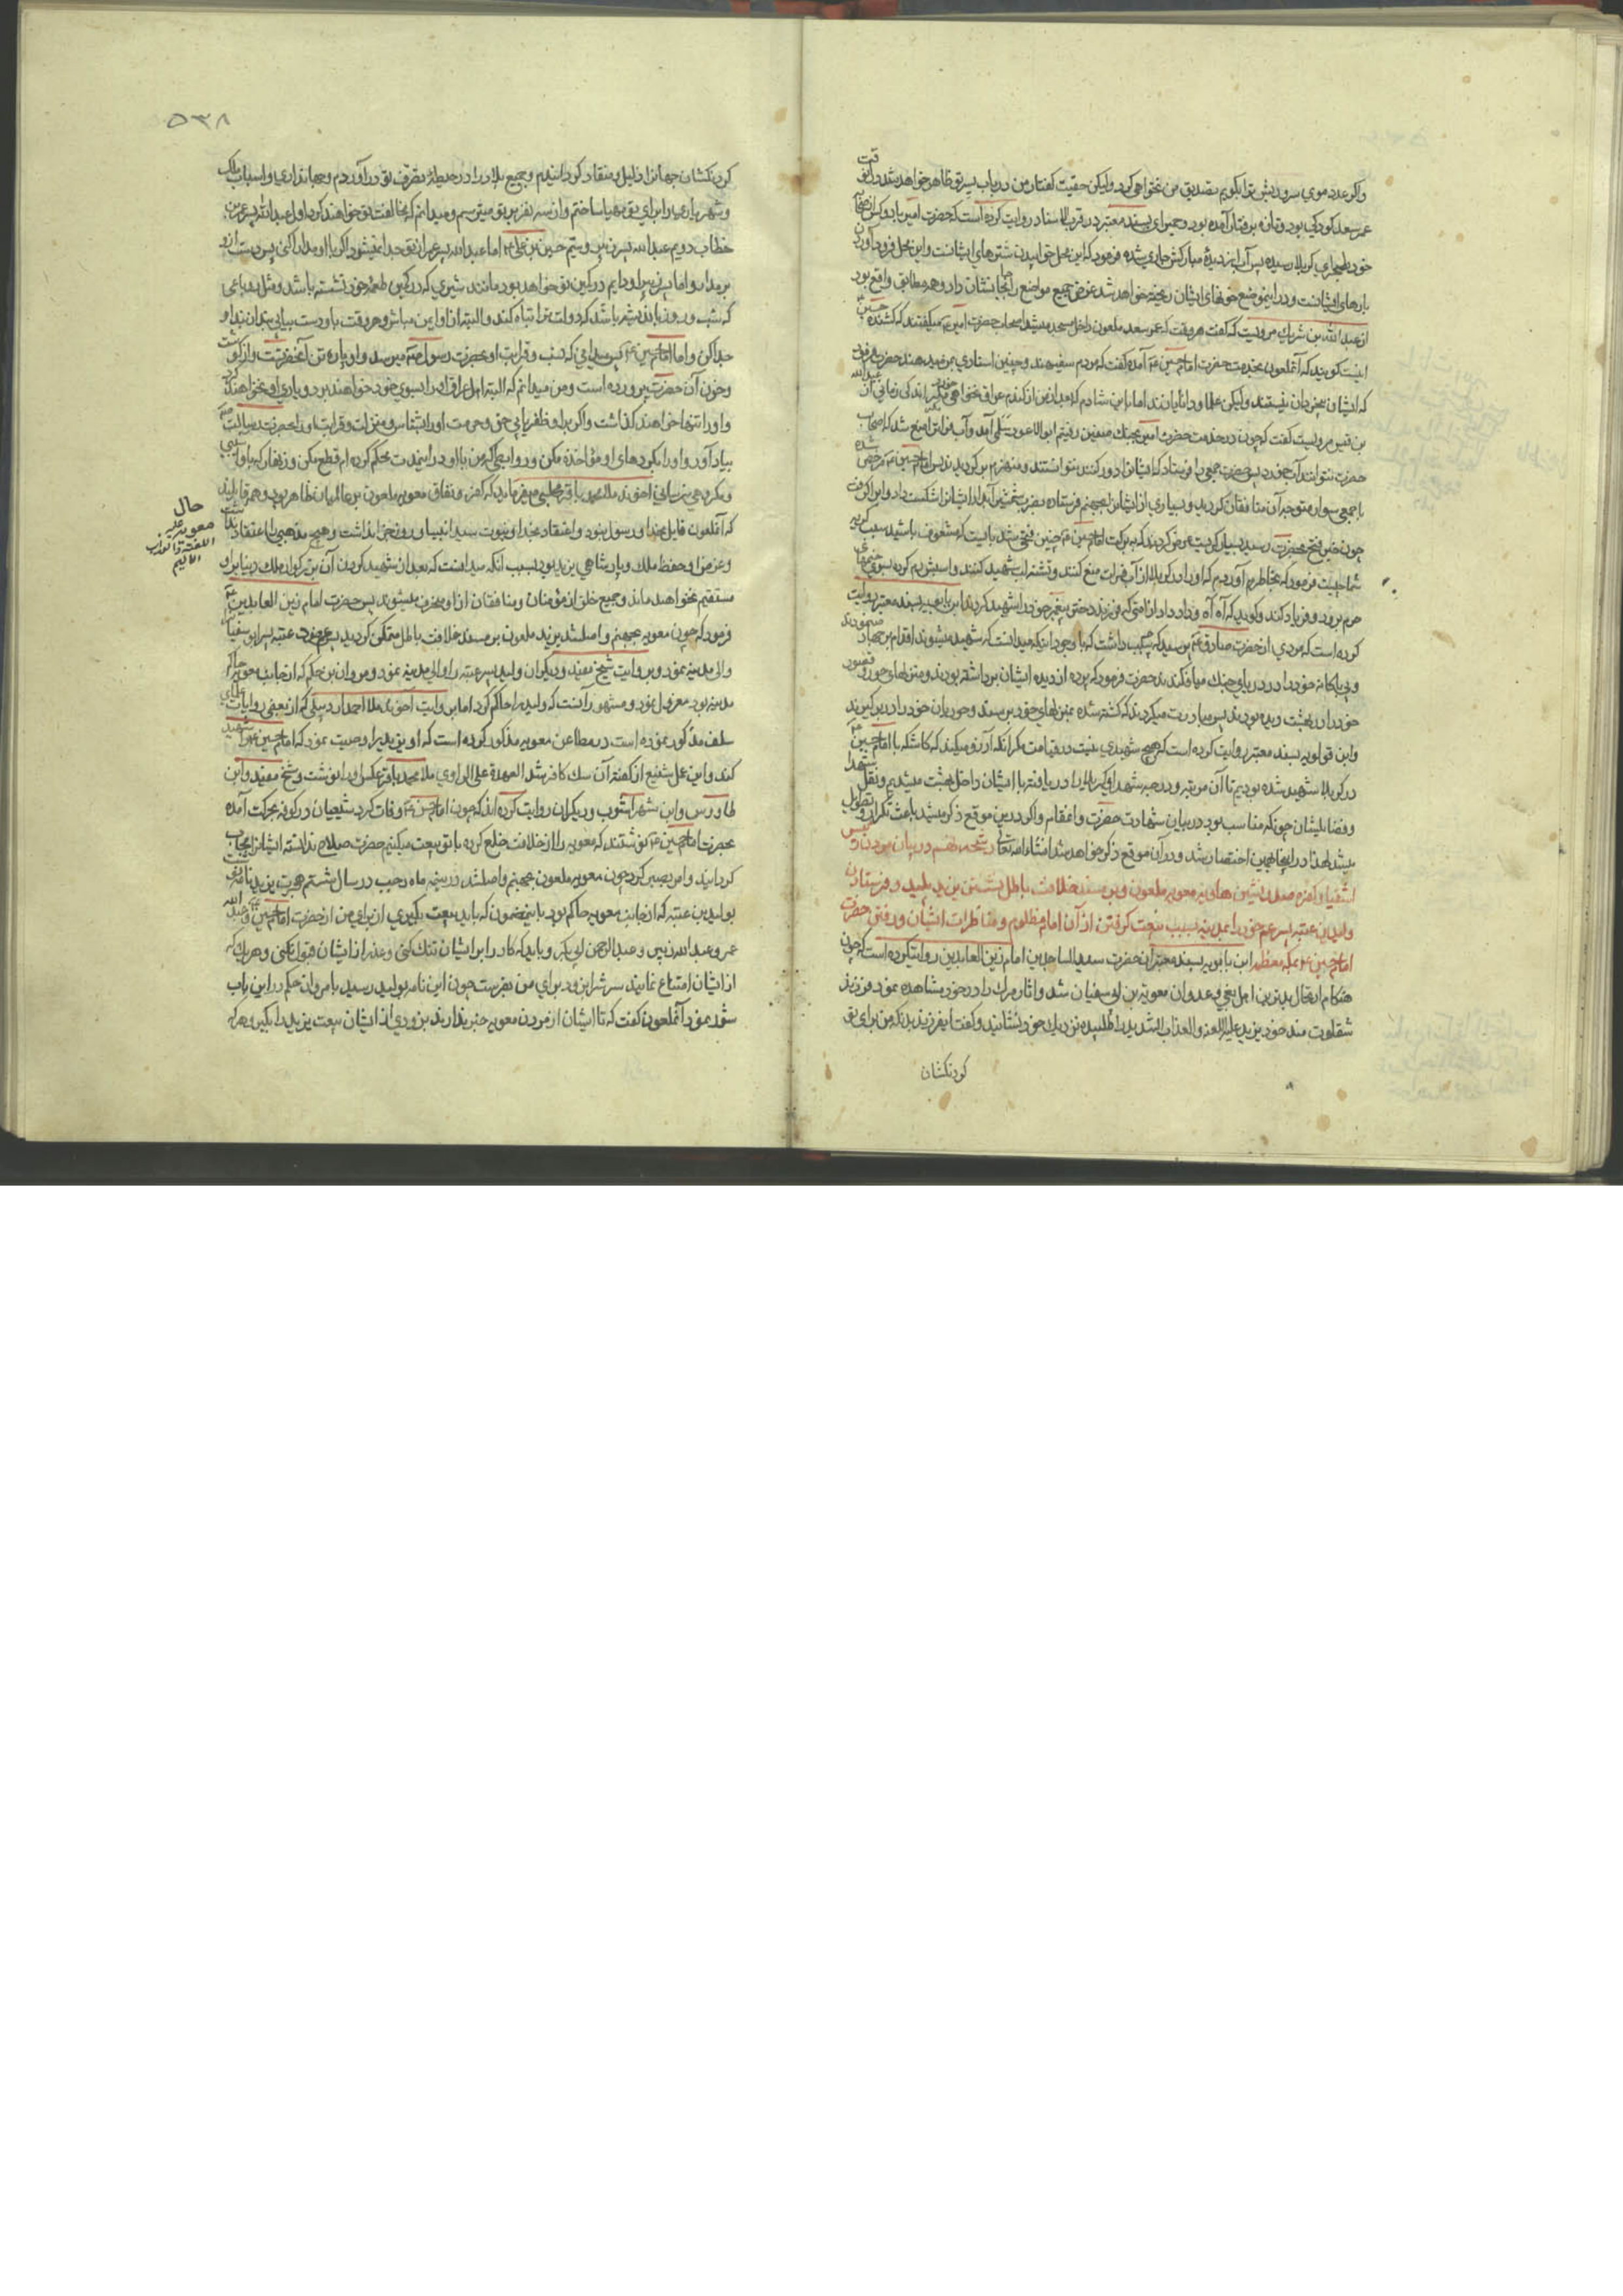 واکر عدد موی سر و ریش ترا بکویم تصدیق من نخواهی کرد ولیکن حقیت کفتار من در باب پسر تو ظاهر خواهد شد
عمر سعد کودکی بود و تازه برفتار آمده بود و حمیری بسند معتبر در قرب الاسناد روایت کرده است که حضرت امیر
خود بصحرای کربلا رسیده پس آب از دیدهٔ مبارکش جاری شده فرمود که این محل خوابیدن شترهای ایشانست و این محل فرود آوردن
بارهای ایشانست و در اینموضع خونهای ایشان ریخته خواهد شد غرض جمیع مواضع را بآنجا نشان داد و همه مطابق واقع بود
از عبد الله بن شریك مرویست که کفت هر وقت که عمر سعد ملعون داخل مسجد میشد اصحاب حضرت امیر میکفتند که کشنده حسین
اینست کویند که آنملعون بخدمت حضرت امام حسین آمده کفت که مردم سفیه هستند و چنین اسنادی بمن میدهند حضرت فرمود
که ایشان بیخردان نیستند ولیکن علما و دانایانند اما باین شادم که بعد از من از کندم عراق نخواهی خورد مکر اندکی زمانی از عبد الله
بن قیس مرویست کفت که چون در خدمت حضرت امیر بجنك صفین رفتیم ابو الاعور سلمی آمد و آب فرات را منع شد که اصحاب
حضرت نتوانند آب خورد پس حضرت جمعی را فرستاد که ایشانرا دور کنند نتوانستند و منهزم برکردیدند پس امام حسین مرخص شده
با جمعی سواره متوجه آن منافقان کردید و بسیاری از ایشانرا بجهنم فرستاده بضرب شمشیر آبدار ایشانرا شکست داد و آب را کرفت
چون خبر فتح بحضرت رسید بسیار کریست عرض کردند که ببرکت امام حسین چنین فتحی شد بایست که مشعوف باشید سبب کریه
شما چیست فرمود که بخاطرم آوردم که او را در کربلا از آب فرات منع کنند و تشنه لب شهید کنند و اسبش رم کرده بسوی خیمهای
حرم برود و فریاد کند و کوید که آه آه و داد و داد از امتی که فرزند دختر پیغمبر خود را شهید کردند ابن بابویه بسند معتبر روایت
کرده است که مردی از حضرت صادق پرسید که چه سبب داشت که با وجود اینکه میدانست که شهید میشوند اقدام بر جهاد مینمودند
و بی باکانه خود را در دریای جنك میافکندند حضرت فرمود که پرده از دیده ایشان برداشته بودند و منزلهای حور و قصور
خود را در بهشت دیده بودند پس مبادرت میکردند که کشته شده بمنزلهای خود برسند و حوریان خود را در بر کیرند
و ابن قولویه بسند معتبر روایت کرده است که هیچ شهیدی نیست در قیامت مکر آنکه آرزو میکند که کاشکه با امام حسین
در کربلا شهید شده بودیم تا آن مرتبه و درجه شهدای کربلا را دریافته با ایشان داخل بهشت میشدیم و نقل
و فضایلیشان چونکه مناسب بود در بیان شهادت حضرت و اعقام و اکر در این موقع ذکر میشد باعث تکرار و تطویل
میشد لهذا در اینجا بهمین اختصار شد و در آن موقع ذکر خواهد شد انشاء الله تعالی رشحه هفتم در بیان مردن
اشقیا و کفره صدر نشین هاویه معویه ملعون و بر مسند خلافت باطل نشستن یزید پلید و فرستادن
ولید بن عتبه پسر عم خود را بمدینه بسبب بیعت کرفتن از آن امام مظلوم و مناظرات ایشان و رفتن حضرت
امام حسین بمکه معظمه ابن بابویه بسند معتبر از حضرت سید الساجدین امام زین العابدین روایت کرده است که چون
هنکام ارتحال بدترین اهل بغی و عدوان معویة بن ابی سفیان شد و اثار مرك را در خود مشاهده نمود فرزند
شقاوت مند خود یزید علیه اللعنه و العذاب الشدید را طلبیده نزدیك خود نشانید و کفت ایفرزند بدانکه من برای تو
کردنکشان
۵۳۸
کردنکشان جهانرا ذلیل و منقاد کردانیدم و جمیع بلاد را در حیطهٔ تصرف تو در آوردم و جهانداری و اسباب ملك
و شهریاری را برای تو مهیا ساختم و از سه نفر بر تو میترسم و میدانم که مخالفت تو خواهند کرد اول عبد الله پسر عمر بن
خطاب دویم عبد الله پسر زبیر و سیم حسین بن علی اما عبد الله پسر عمر از تو جدا نمیشود اکر با او مدارا کنی پس دست از او
بر مدار و اما پسر زبیر مدام در کمین تو خواهد بود مانند شیری که در کمین طعمهٔ خود نشسته باشد
که شب و روز باندیشه باشد که دولت ترا تباه کند و البته از او ایمن مباش و هر وقت باو دست بیابی بند از بند او
جدا کن و اما امام حسین پس میدانی که نسب و قرابت او بحضرت رسول میرسد و او پاره تن آنحضرتست و از کوشت
و خون آن حضرت پرورده است و من میدانم که البته اهل عراق او را بسوی خود خواهند برد و یاری او نخواهند کرد
و او را تنها خواهند کذاشت و اکر بر او ظفر یابی حق و حرمت او را بشناس و منزلت و قرابت او را بحضرت رسالت
بیاد آور و او را بکردهای او مؤاخذه مکن و روابطی که من با او در اینمدت محکم کرده ام قطع مکن و زنهار که باو آسیبی
و مکروهی نرسانی آخوند ملا محمد باقر مجلسی میفرماید که کفر و نفاق معویه ملعون بر عالمیان ظاهر بود
که آنملعون قایل بخدا و رسول نبود و اعتقاد بخدا و نبوت سید انبیا و روز جزا نداشت و هیچ مذهبی را اعتقاد نداشت
و غرض او حفظ ملك و پادشاهی یزید بود بسبب آنکه میدانست که بعد از شهید کردن آن بزرکوار ملك دنیا بر او
مستقیم نخواهد ماند و جمیع خلق از مؤمنان و منافقان از او منحرف میشوند پس حضرت امام زین العابدین
فرمود که چون معویه بجهنم واصل شد یزید ملعون بر مسند خلافت باطل متمکن کردید پس عم خود عتبه پسر ابو سفیان
والی مدینه نمود و بروایت شیخ مفید و دیکران ولید پسر عتبه را والی مدینه نمود و مروان بن حکم که از جانب معویه حاکم
مدینه بود معزول نمود و مشهور آنست که ولید را حاکم کرد اما بروایت آخوند ملا احمد اردبیلی که از بعضی روایات علمای
سلف مذکور نموده است در مطاعن معویه مذکور کرده است که او یزید را وصیت نمود که امام حسین را شهید
کند و این عمل شنیع از کفته آن سك کافر شد العهدة علی الراوی ملا محمد باقر عکس او را نوشت و شیخ مفید و ابن
طاوس و ابن شهراشوب و دیکران روایت کرده اند که چون امام حسن وفات کرد شیعیان در کوفه بحرکت آمده
بحضرت امام حسین نوشتند که معویه را از خلافت خلع کرده با تو بیعت میکنیم حضرت صلاح ندانسته ایشانرا مجاب
کردانید و امر بصبر کرد چون معویه ملعون بجهنم واصل شد در نیمه ماه رجب در سال شستم هجرت یزید نامه
بولید بن عتبه که از جانب معویه حاکم بود باینمضمون که باید بیعت بکیری از برای من از حضرت امام حسین و عبد الله
عمر و عبد الله زبیر و عبد الرحمن ابی بکر و باید که کار را بر ایشان تنك کنی و عذر از ایشان قبول نکنی و هر یك که
از ایشان امتناع نمایند سرش را بزودی برای من بفرست چون این نامه بولید رسید با مروان حکم در این باب
شور نمود آنملعون کفت که تا ایشان از مردن معویه خبر ندارند بزودی از ایشان بیعت یزید را بکیر و هر که
حال
معویه علیه
اللعنة و العذاب
الالیم